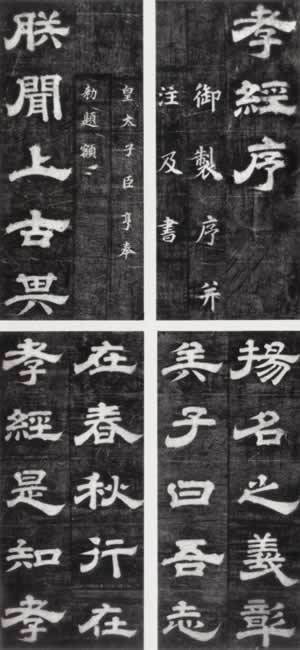 孝經序
御製序并
注及書
皇太子臣亨奉
勅題額
朕聞上古其
揚名之義彰
矣子曰吾志
在春秋行在
孝經是知孝